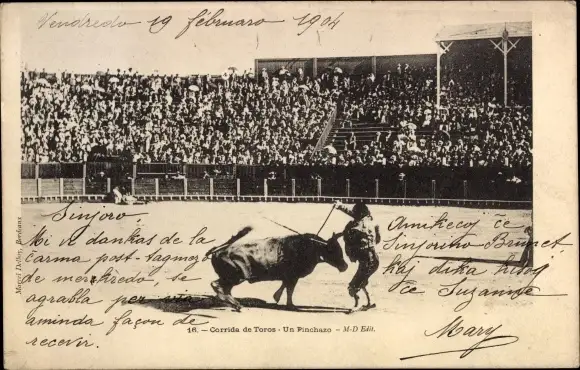 Vendredo 19 februaro 1904
Sinjoro.
Mi vi dankas de la
carma post-tagmezo
de merkredo, se
agrabla per via
aminda façon de
recever.
Amikecoj ĉe
Sinjorino Brunet
kaj
ĉe Suzanne
Mary
16. – Corrida de Toros - Un Pinchazo – M-D Edit.
Marcel Delboy, Bordeaux